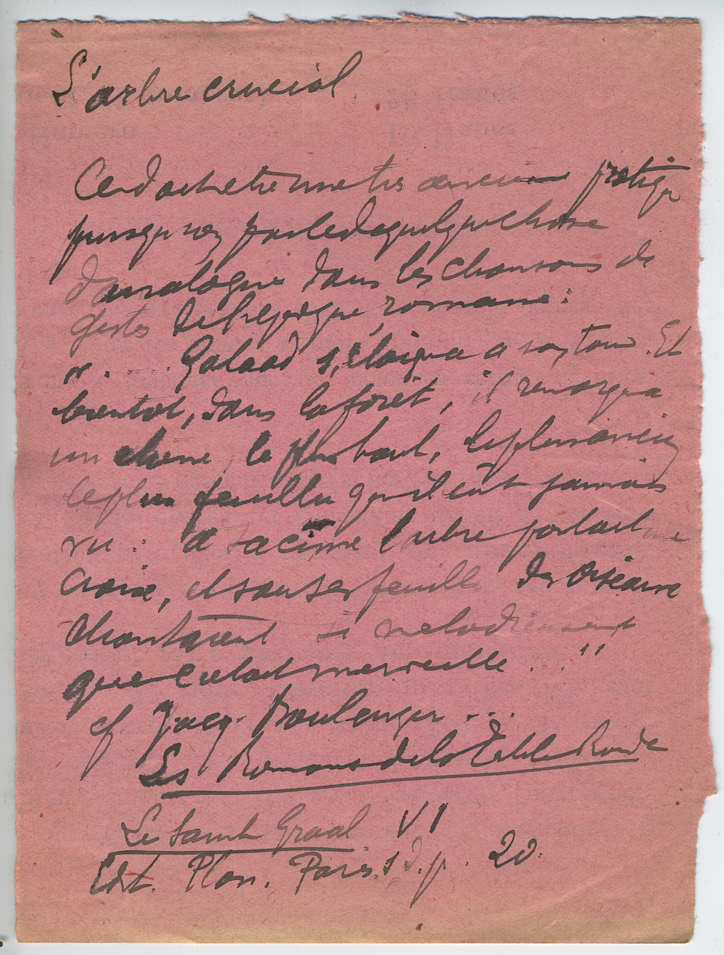 L'arbre crucial
Ce doit être une très ancienne
puisqu'on parle de quelque chose
d'analogue dans les chansons de
gestes de l'époque romane:
". . . . Galaad s'éloigna à son tour. Et
bientôt, dans la forêt, il remarqua
un chêne, le plus haut, le plus ancien
le plus feuillu qu'il eût jamais
vu : à sa cime l'arbre portait une
croix, et sous ses feuilles des oiseaux
chantaient si mélodieusement
que c'était merveille . . "
cf Jacq. Boulenger . . .
Les Romans de la Table Ronde
Le Saint Graal VI
Edit. Plon. Paris. s.d. p. 20.